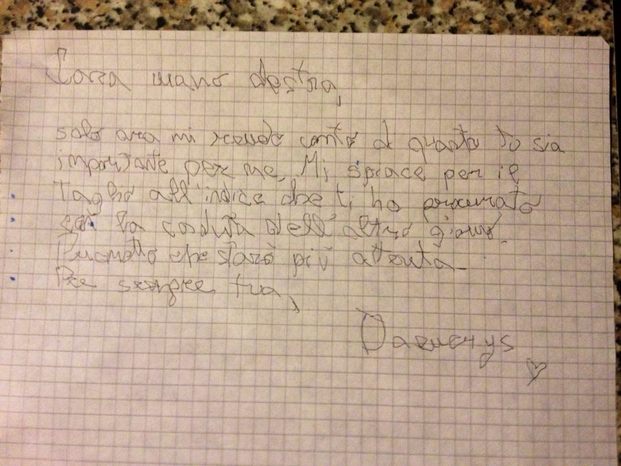 Cara mano destra,
solo ora mi rendo conto di quanto tu sia
importante per me. Mi spiace per il
taglio all'indice che ti ho procurato
con la caduta dell'altro giorno.
Prometto che starò più attenta.
Per sempre tua,
Daenerys